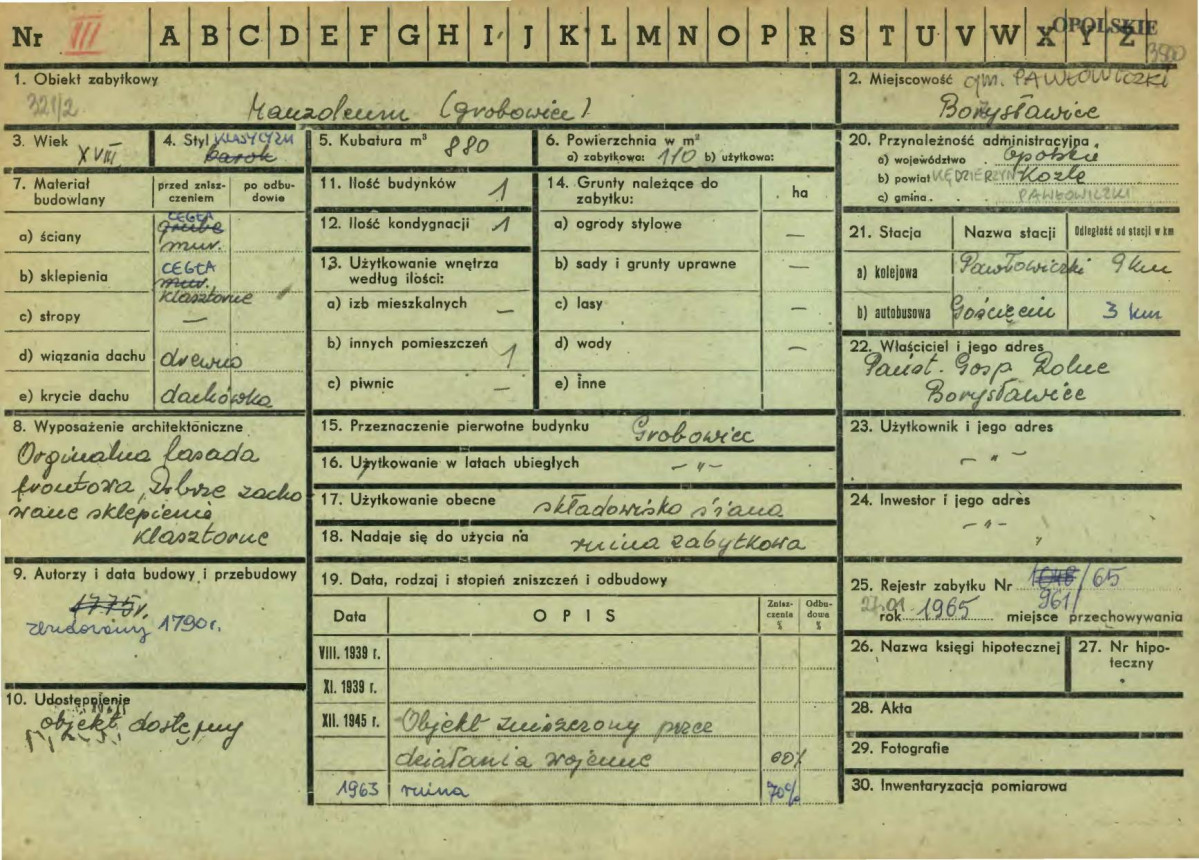 Nr III A B C D E F G H I J K L M N O P R S T U V W X Y Z
OPOLSKIE
3500
1. Obiekt zabytkowy
321/2
Mauzoleum (grobowiec)
2. Miejscowość gm. PAWŁOWICZKI
Borysławice
3. Wiek XVIII
4. Styl KLASYCYZM
barok
5. Kubatura m³ 880
6. Powierzchnia w m²
a) zabytkowa: 110 b) użytkowa:
20. Przynależność administracyjna
a) województwo opolskie
b) powiat KĘDZIERZYN Koźle
c) gmina PAWŁOWICZKI
7. Materiał budowlany
przed zniszczeniem
po odbudowie
a) ściany
CEGŁA
grube
mur.
b) sklepienia
CEGŁA
mur.
klasztorne
c) stropy —
d) wiązania dachu drewno
e) krycie dachu dachówka
11. Ilość budynków 1
12. Ilość kondygnacji 1
13. Użytkowanie wnętrza
według ilości:
a) izb mieszkalnych —
b) innych pomieszczeń 1
c) piwnic —
14. Grunty należące do
zabytku:
ha
a) ogrody stylowe —
b) sady i grunty uprawne —
c) lasy —
d) wody —
e) inne
21. Stacja
Nazwa stacji
Odległość od stacji w km
a) kolejowa Pawłowiczki 9 km
b) autobusowa Gościęcin 3 km
22. Właściciel i jego adres
Państ. Gosp. Rolne
Borysławice
8. Wyposażenie architektoniczne
Orginalna fasada
frontowa, Dobrze zacho
wane sklepienie
klasztorne
15. Przeznaczenie pierwotne budynku Grobowiec
16. Użytkowanie w latach ubiegłych — „ —
17. Użytkowanie obecne składowisko siana
18. Nadaje się do użycia na ruina zabytkowa
23. Użytkownik i jego adres
— „ —
24. Inwestor i jego adres
— „ —
9. Autorzy i data budowy i przebudowy
1775 r.
zbudowany 1790 r.
19. Data, rodzaj i stopień zniszczeń i odbudowy
Data
OPIS
Zniszczenia %
Odbudowa %
VIII. 1939 r.
XI. 1939 r.
XII. 1945 r. Objekt zniszczony przez
działania wojenne 60%
1963 ruina 70%
25. Rejestr zabytku Nr 1048/65
961/
27.01 rok 1965 miejsce przechowywania
26. Nazwa księgi hipotecznej
27. Nr hipoteczny
10. Udostępnienie
objekt dostępny
28. Akta
29. Fotografie
30. Inwentaryzacja pomiarowa